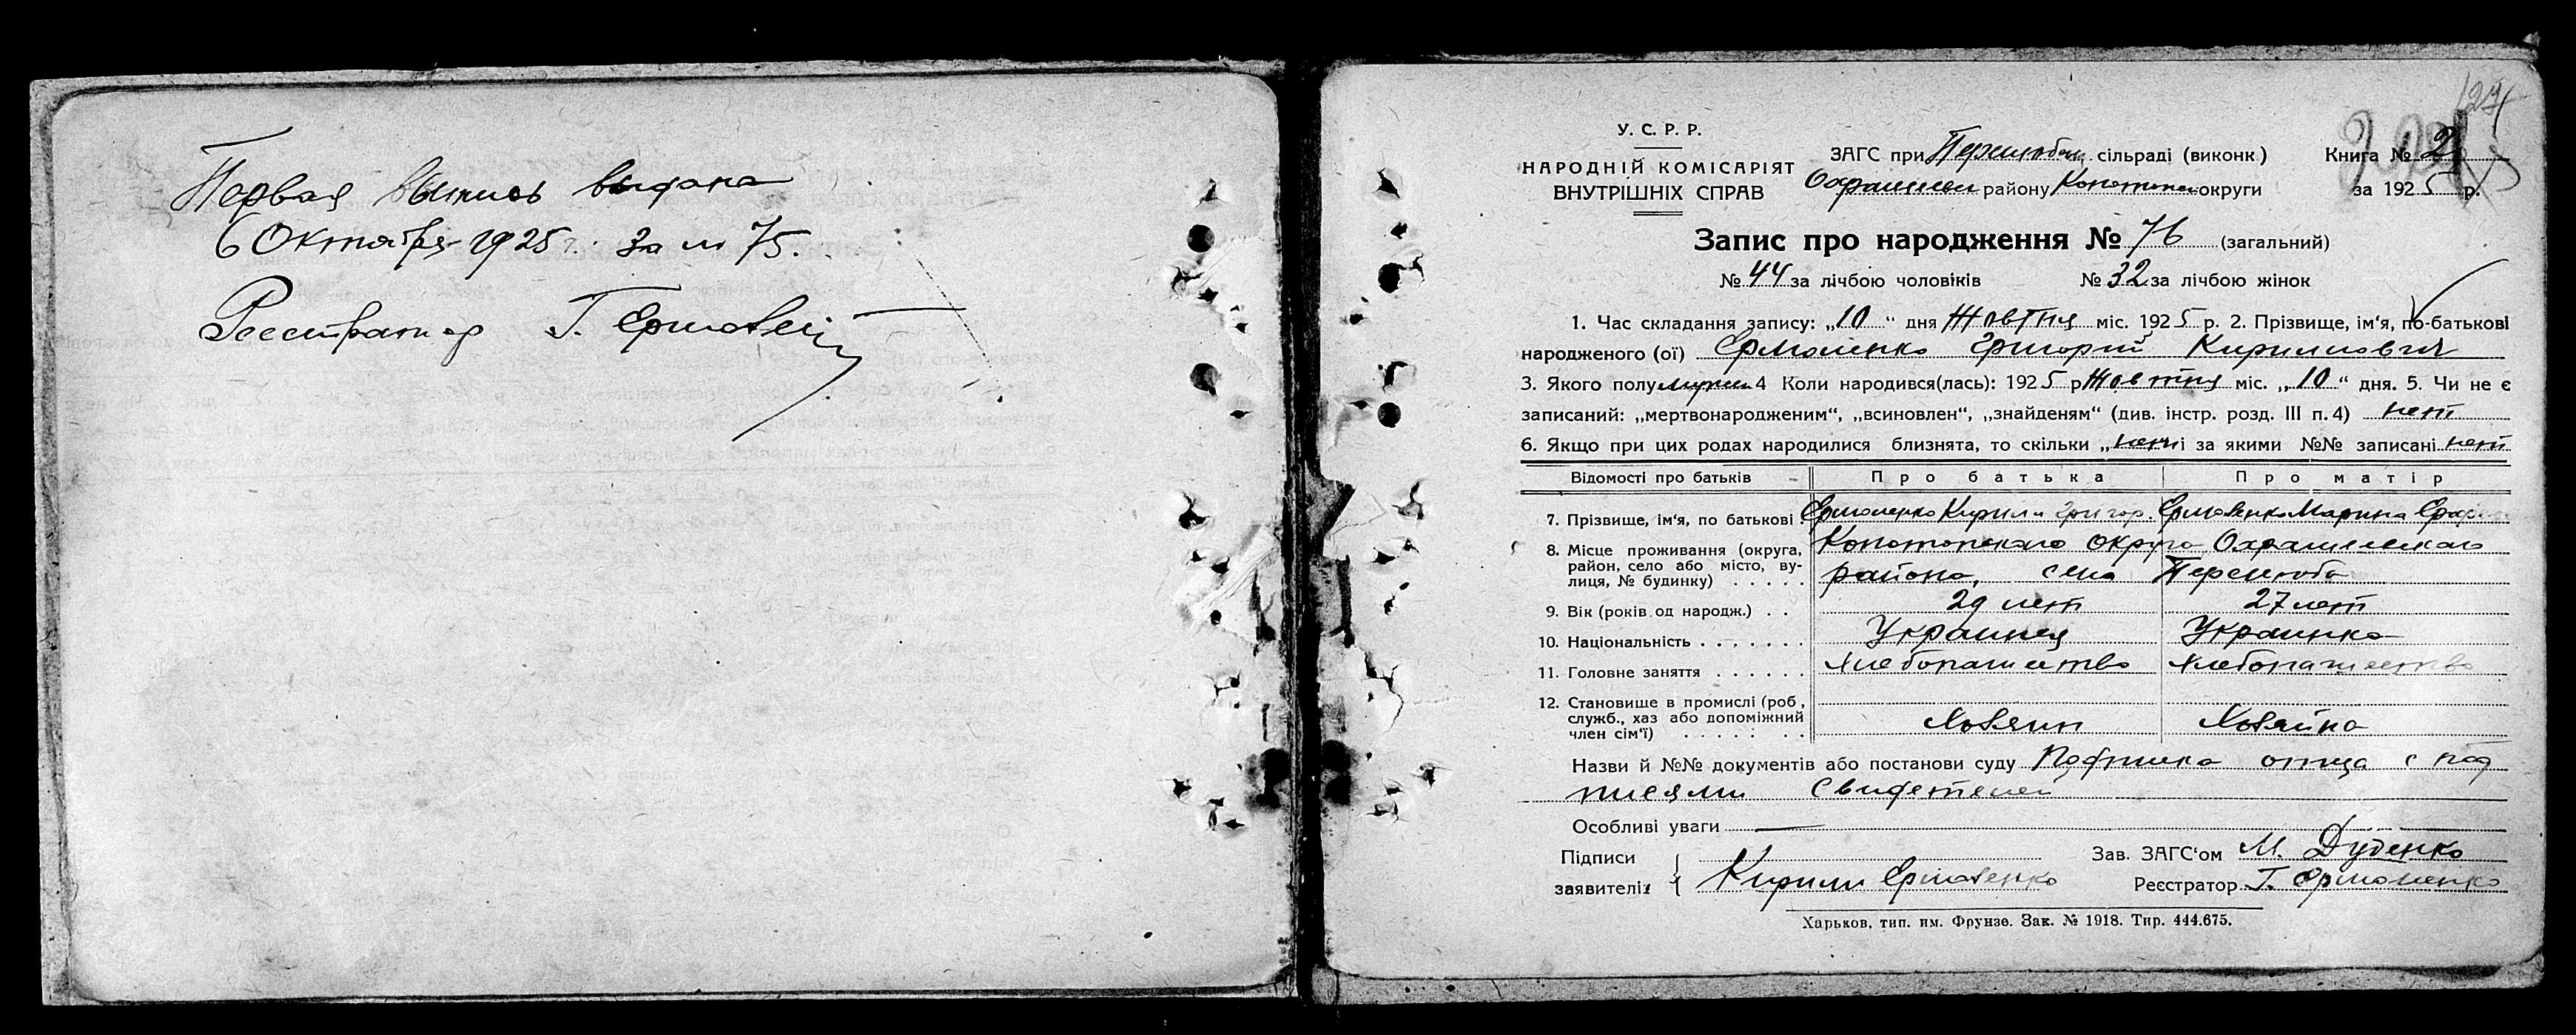 Первая выпись выдана
6 Октября 1925 г. За № 75.
Реестратор Г.
У. С. Р. Р.
НАРОДНІЙ КОМІСАРІЯТ
ВНУТРІШНІХ СПРАВ
ЗАГС при сільраді (виконк.) Книга № 2
району округи за 1925 р.
Запис про народження № 76 (загальний)
№ 44 за лічбою чоловіків № 32 за лічбою жінок
1. Час складання запису: „10“ дня Жовтня міс. 1925 р. 2. Прізвище, ім‘я, по-батькові
народженого (ої) Ермоленко Григорий Кириллович
3. Якого полу 4 Коли народився(лась): 1925 р Жовтня міс. „10“ дня. 5. Чи не є
записаний: „мертвонародженим“, „всиновлен“, „знайденям“ (див. інстр. розд. III п. 4) нет
6. Якщо при цих родах народилися близнята, то скільки „нет і за якими №№ записані нет
Відомості про батьків Про батька Про матір
7. Прізвище, ім‘я, по батькові Ермоленко Кирилл Григор. Ермоленко Марина
8. Місце проживання (округа, Конотопского округа
район, село або місто, ву-
лиця, № будинку) района, села Перелюба
9. Вік (років од народж.) 29 лет 27 лет
10. Національність Украинец Украинка
11. Головне заняття хлебопашество хлебопашество
12. Становище в промислі (роб,
служб., хаз або допоміжний
член сім‘ї) Хозяин Хозяйка
Назви й №№ документів або постанови суду Подписка отца с под
писями свидетелей
Особливі уваги —
Підписи Зав. ЗАГС‘ом М. Дуденко
заявителів Кирилл Ермоленко Реєстратор Г. Ермоленко
Харьков, тип. им. Фрунзе. Зак. № 1918. Тир. 444.675.